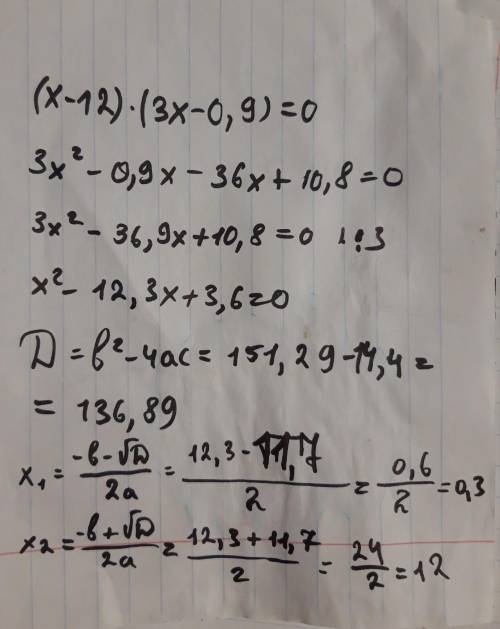 (x-12)·(3x-0,9)=0
3x² - 0,9x - 36x + 10,8 = 0
3x² - 36,9x + 10,8 = 0 | : 3
x² - 12,3x + 3,6 = 0
D = b² - 4ac = 151,29 - 14,4 =
= 136,89
x₁ = (-b - √D)/2a = (12,3 - 11,7)/2 = 0,6/2 = 0,3
x₂ = (-b + √D)/2a = (12,3 + 11,7)/2 = 24/2 = 12